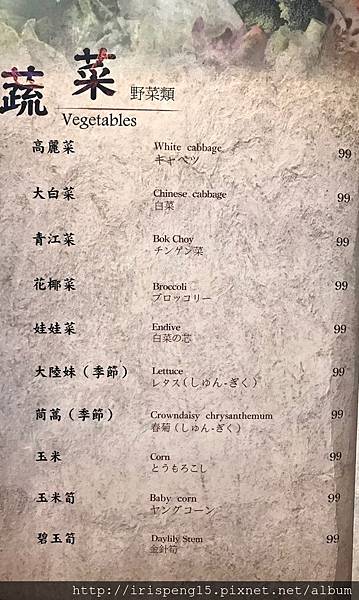 蔬菜 野菜類
Vegetables
高麗菜 White cabbage 99
キャベツ
大白菜 Chinese cabbage 99
白菜
青江菜 Bok Choy 99
チンゲン菜
花椰菜 Broccoli 99
ブロッコリー
娃娃菜 Endive 99
白菜の芯
大陸妹（季節） Lettuce 99
レタス（しゅん-ぎく）
茼萵（季節） Crowndaisy chrysanthemum 99
春菊（しゅん-ぎく）
玉米 Corn 99
とうもろこし
玉米筍 Baby corn 99
ヤングコーン
碧玉筍 Daylily Stem 99
金針筍
http://irispeng15.pixnet.net/album